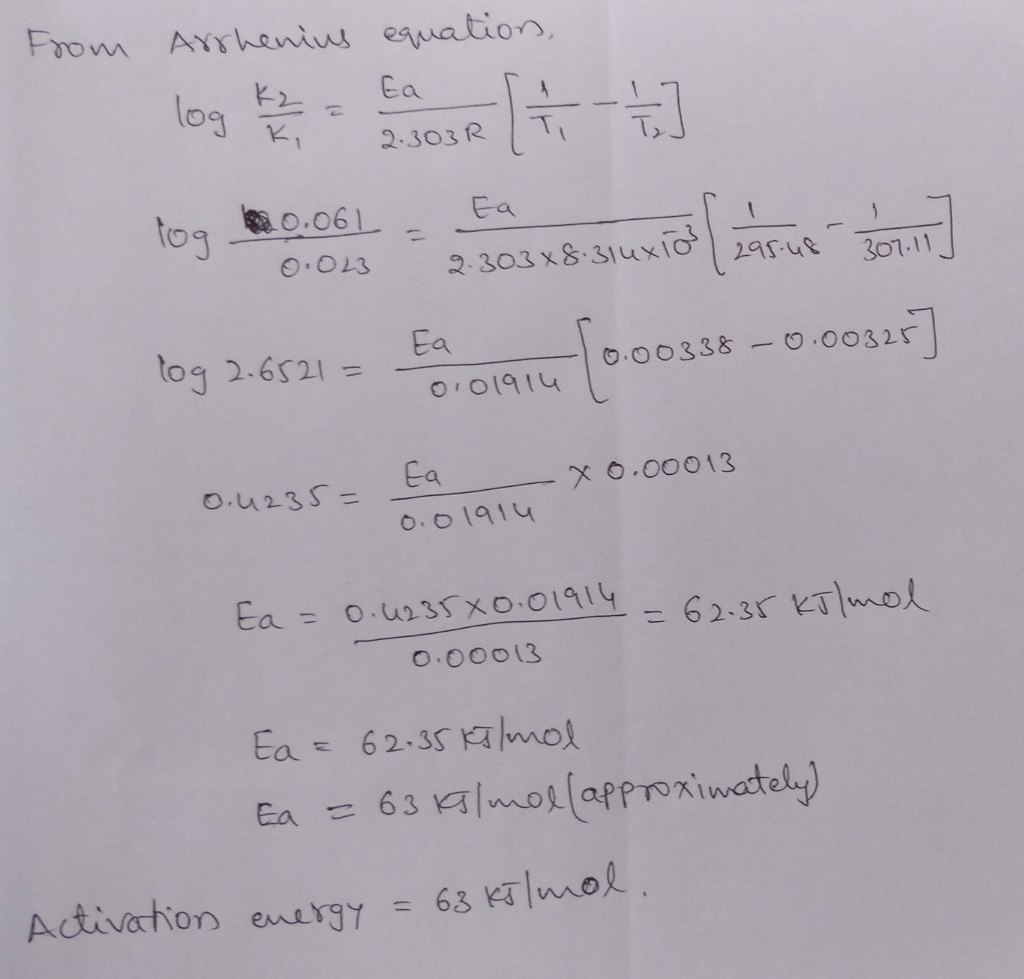 From Arrhenius equation,
log K2/K1 = Ea/2.303R [1/T1 - 1/T2]
log 0.061/0.023 = Ea/2.303×8.314×10^-3 [1/295.48 - 1/307.11]
log 2.6521 = Ea/0.01914 [0.00338 - 0.00325]
0.4235 = Ea/0.01914 × 0.00013
Ea = 0.4235×0.01914/0.00013 = 62.35 KJ/mol
Ea = 62.35 KJ/mol
Ea = 63 KJ/mol (approximately)
Activation energy = 63 KJ/mol.